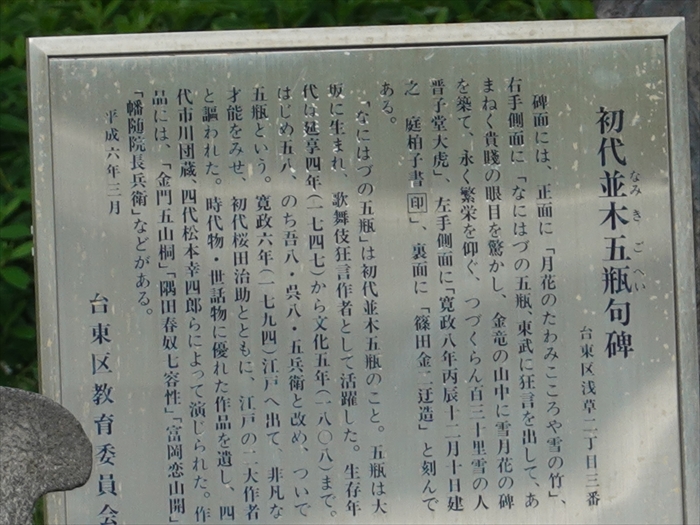 初代並木五瓶句碑
なみきごへい
台東区浅草二丁目三番
碑面には、正面に「月花のたわみこころや雪の竹」、
右手側面に「なにはづの五瓶、東武に狂言を出して、あ
まねく貴賤の眼目を驚かし、金竜の山中に雪月花の碑
を築て、永く繁栄を仰ぐ、つづくらん百三十里雪の人
晋子堂大虎」、左手側面に「寛政八年丙辰十二月十日建
之 庭柏子書印」、裏面に「篠田金二迂造」と刻んで
ある。
「なにはづの五瓶」は初代並木五瓶のこと。五瓶は大
坂に生まれ、歌舞伎狂言作者として活躍した。生存年
代は延享四年(一七四七)から文化五年(一八〇八)まで。
はじめ五八、のち吾八・呉八・五兵衛と改め、ついで
五瓶という。寛政六年(一七九四)江戸へ出て、非凡な
才能をみせ、初代桜田治助とともに、江戸の二大作者
と謳われた。時代物・世話物に優れた作品を遺し、四
代市川団蔵、四代松本幸四郎らによって演じられた。作
品には、「金門五山桐」「隅田春奴七容性」「富岡恋山開」
「幡随院長兵衛」などがある。
平成六年三月
台東区教育委員会